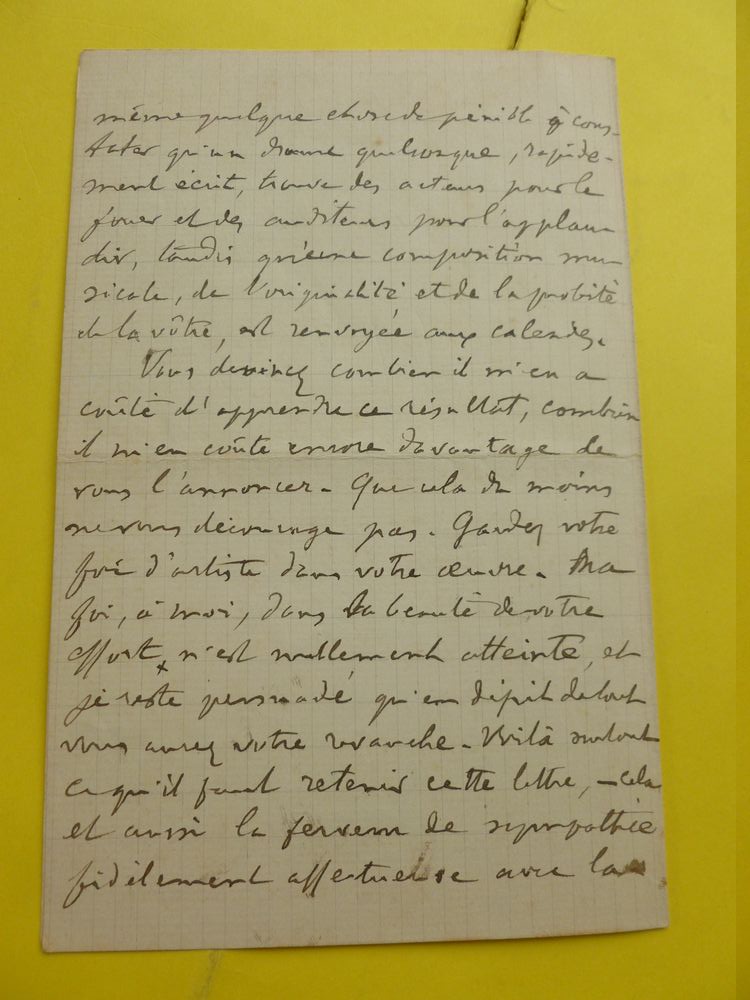 même quelque chose de pénible à cons-
tater qu'un drame quelconque, rapide-
ment écrit, trouve des acteurs pour le
jouer et des auditeurs pour l'applau
dir, tandis qu'une composition mu
sicale, de l'originalité et de la probité
de la vôtre, est renvoyée aux calendes.
Vous devinez combien il m'en a
coûté d'apprendre ce résultat, combien
il m'en coûte encore davantage de
vous l'annoncer. Que cela du moins
ne vous décourage pas. Gardez votre
foi d'artiste dans votre œuvre. Ma
foi, à moi, dans la beauté de votre
effort, n'est nullement atteinte, et
je reste persuadé qu'en dépit de tout
vous aurez votre revanche. Voilà surtout
ce qu'il faut retenir cette lettre, – cela
et aussi la ferveur de sympathie
fidèlement affectueuse avec la